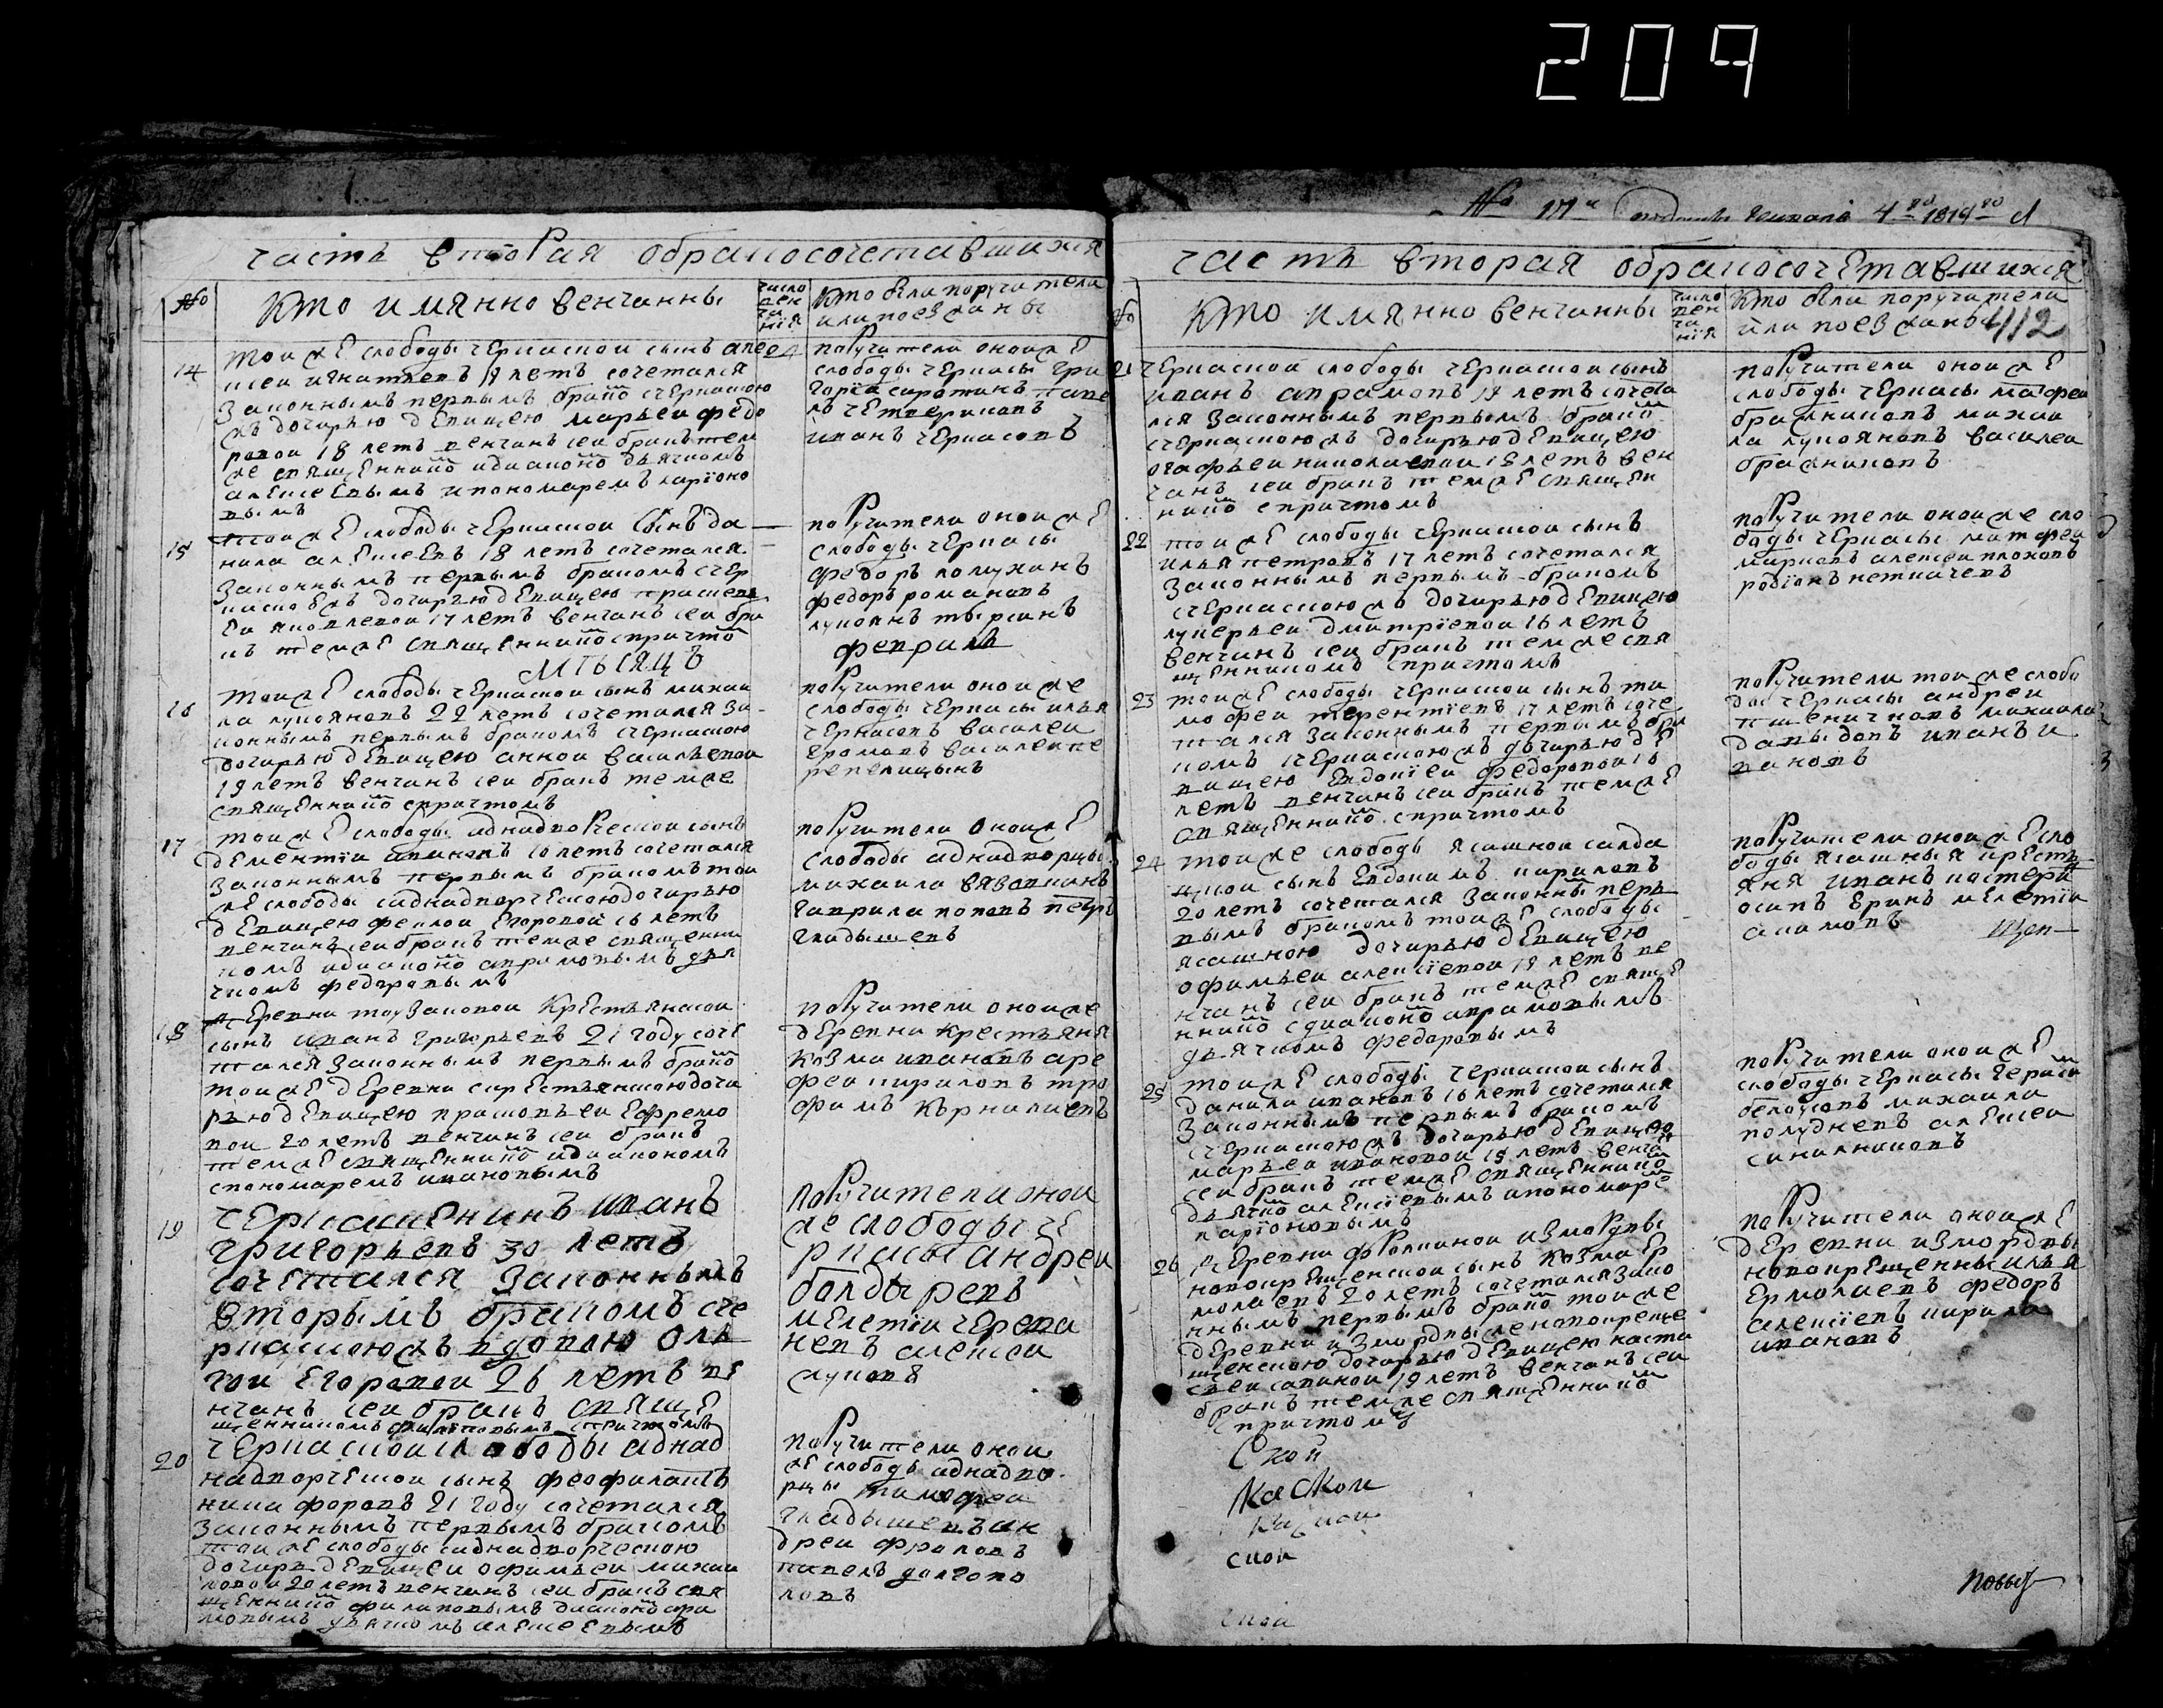 209
часть вторая обракосочетавшихся
№
кто имянно венчанны
число вен ча нїя
кто были поручители
или поезжаны
14
тои же слободы черкаскои сынъ але
24
ксеи игнатьевъ 19 летъ сочетался
законнымъ первымъ брако счеркаскою
жъ дочерью девицею марьеи федо
ровои 18 летъ венчанъ сеи бракъ тем
же священнико идиаконо дьячкомъ
алексеевымъ ипономаремъ ларїоно
вымъ
поручители оноиже
слободы черкасы гри
горїи сиротинъ паве
лъ четвериковъ
иванъ черкасовъ
15
тоиже слободы черкаскои сынъ да
нила алексеевъ 18 летъ сочетался
законнымъ первымъ бракомъ счер
каскоюжъ дочерью девицею прасковь
еи яковлевои 17 летъ венчанъ сеи бра
къ темже священнико спричто
поручители оноиже
слободы черкасы
федоръ ломухинъ
федоръ романовъ
лукоянъ
мѣсяцъ
февраль
16
тоиже слободы черкаскои сынъ михаи
ла лукояновъ 22 летъ сочетался за
коннымъ первымъ бракомъ счеркаскою
дочерью девицею анною васильевои
19 летъ венчанъ сеи бракъ темже
священнико спричтомъ
поручители оноиже
слободы черкасы илья
черкасовъ василеи
громовъ василеи пе
репелицынъ
17
тоиже слободы аднадворческои сынъ
дементїи ивановъ 16 летъ сочетался
законнымъ первымъ бракомъ тои
же слободы саднадворческою дочерью
девицею феклои егоровои 16 летъ
венчанъ сеи бракъ темже священни
комъ идиаконо аврамовымъ дья
чкомъ федоровымъ
поручители оноиже
слободы аднадворцы
михаила вязовкинъ
гаврила поповъ петръ
гладышевъ
18
деревни таузаковои крестьянскои
сынъ иванъ григорьевъ 21 году соче
тался законнымъ первымъ брако
тоиже деревни скрестьянскою доче
рью девицею прасковьеи ефремо
вои 20 летъ венчанъ сеи бракъ
темже священнико идиакономъ
спономаремъ ивановымъ
поручители оноиже
деревни крестьяня
козма ивановъ аре
феи кириловъ тро
фимъ кърнилаевъ
19
черкашенинъ иванъ
григорьевъ 30 летъ
сочетался законнымъ
вторымъ бракомъ сче
ркаскоюжъ вдовою оль
гои егоровои 26 летъ ве
нчанъ сеи бракъ свяще
щенникомъ филиповымъ спричтомъ
поручители онои
же слободы че
ркасы андреи
болдыревъ
мелетїи черепа
невъ алексеи
луковъ
20
черкаскои слободы аднад
надворческои сынъ феофилактъ
никифоровъ 21 году сочетался
законнымъ первымъ бракомъ
тоиже слободы саднадворческою
дочерь девицеи офимьеи михаи
ловои 20 летъ венчанъ сеи бракъ свя
щеннико филиповымъ диаконо авра
мовымъ дьячкомъ алексеевымъ
поручители онои
же слободы аднадво
рцы тимофеи
гладышевъ ан
дреи фроловъ
павелъ долгопо
ловъ
часть вторая обракосочетавшихся
№
кто имянно венчанны
число вен ча нїя
кто были поручители
или поезжаны
412
21
черкаскои слободы черкаскои сынъ
иванъ аврамовъ 19 летъ сочета
лся законнымъ первымъ брако
счеркаскоюжъ дочерью девицею
огафьеи николаевои 18 летъ вен
чанъ сеи бракъ темже священ
нико спричтомъ
поручители оноиже
слободы черкасы матфеи
бражниковъ михаи
ла лукояновъ василеи
бражниковъ
22
тоиже слободы черкаскои сынъ
илья петровъ 17 летъ сочетался
законнымъ первымъ бракомъ
счеркаскоюжъ дочерью девицею
лукерьеи дмитрїевои 16 летъ
венчанъ сеи бракъ темже свя
щенникомъ спричтомъ
поручители оноиже сло
боды черкасы матфеи
марковъ алексеи плоховъ
родїонъ
23
тоиже слободы черкаскои сынъ ти
мофеи терентїевъ 17 летъ соче
тался законнымъ первымъ бра
комъ счеркаскоюжъ дочерью де
вицею евдокїеи федоровои 16
летъ венчанъ сеи бракъ темже
священнико спричтомъ
поручители тоиже слобо
ды черкасы андреи
пшеничновъ михаила
давыдовъ иванъ и
вановъ
24
тоиже слободы ясашнои солда
цкои сынъ евдокимъ кириловъ
20 летъ сочетался законны перь
вымъ бракомъ тоиже слободы
ясашною дочерью девицею
офимьеи алексїевои 19 летъ ве
нчанъ сеи бракъ темже свяще
ннико сдиаконо аврамовымъ
дьячкомъ федоровымъ
поручители оноиже сло
боды ясашныя кресть
яня иванъ костери
осипъ еринъ мелетїи
акимовъ
25
тоиже слободы черкаскои сынъ
данила ивановъ 16 летъ сочетался
законнымъ первымъ бракомъ
счеркаскоюжъ дочерью девицею
марьеи ивановои 18 летъ венча
сеи бракъ темже священнико
дьячко алексїевымъ ипономаре
ларїоновымъ
поручители оноиже
слободы черкасы гераси
белоусовъ михаила
полудневъ алексеи
синилниковъ
26
деревни фролкинои измордвы
новокрещенскои сынъ козма ер
молаевъ 20 летъ сочетался зако
ннымъ первымъ брако тоиже
деревни измордвы новокреще
щенскою дочерью девицею наста
сьеи савинои 19 летъ венчанъ сеи
бракъ темже священнико
причтомъ
поручители оноиже
деревни измордвы
новокрещенны илья
ермолаевъ федоръ
алексїевъ кирила
ивановъ
скои
скои